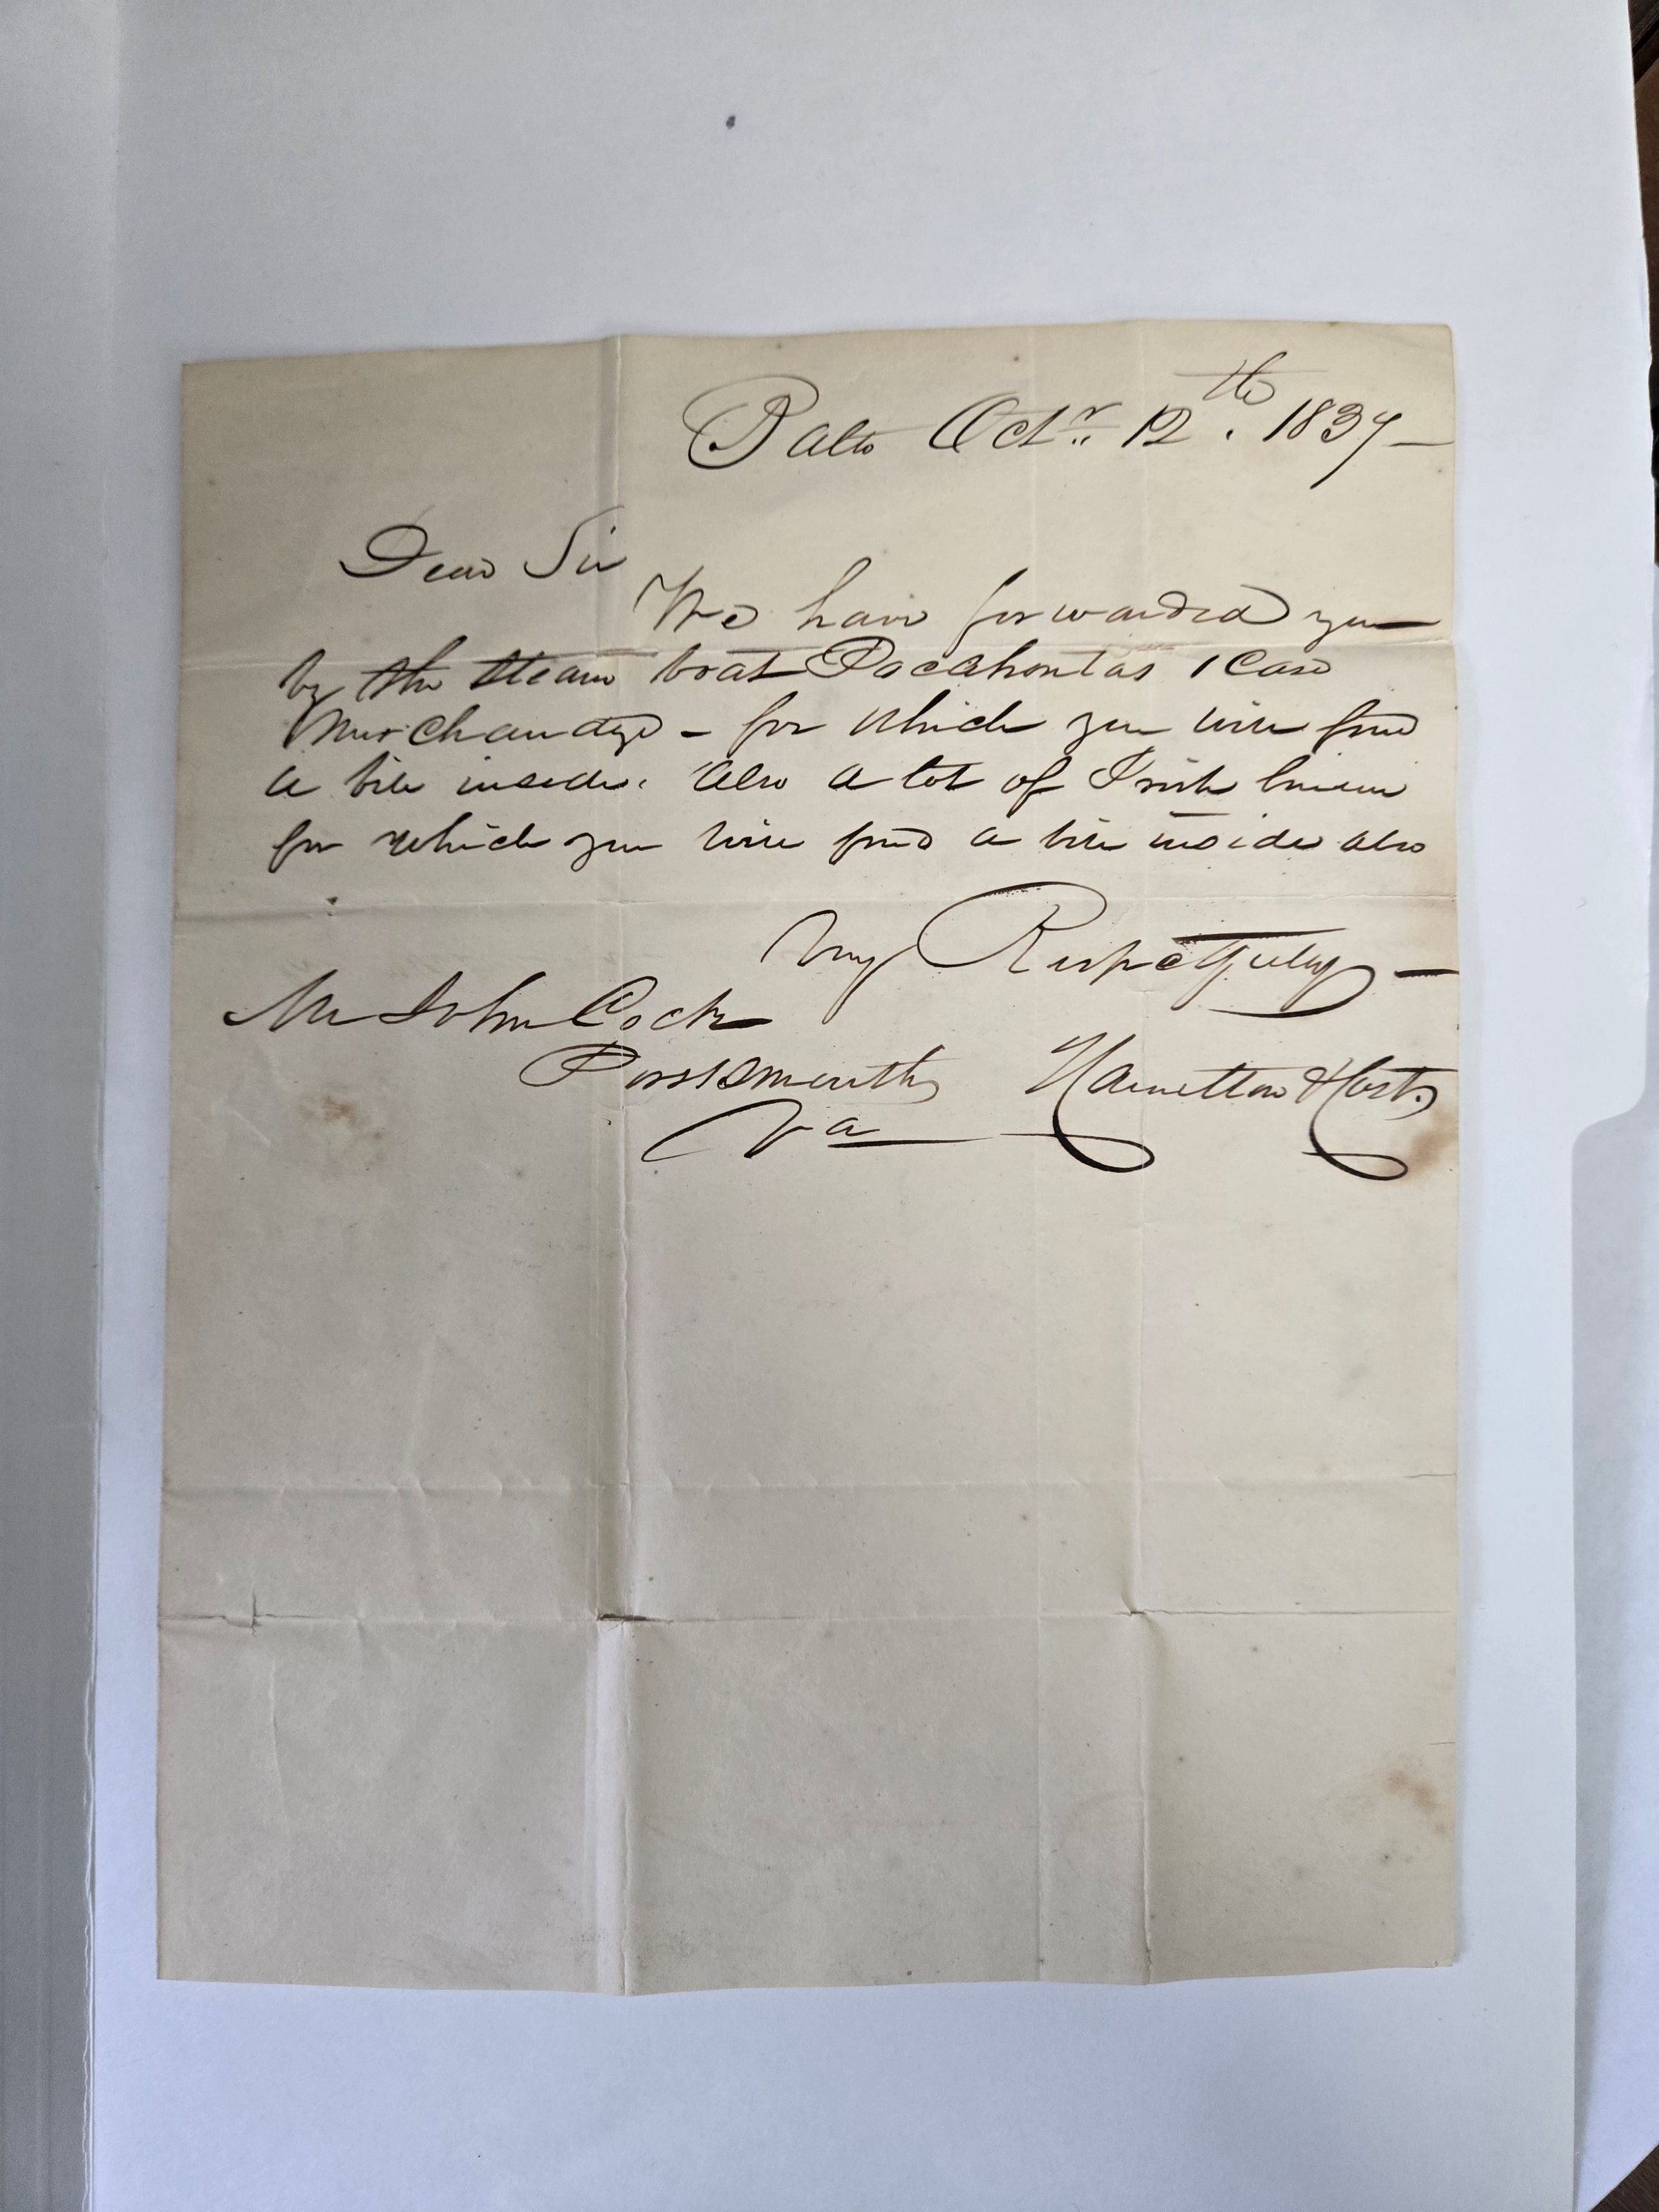 Balto Octr. 12th. 1837 —
Dear Sir
We have forwarded you
by the steam boat Pocahontas 1 Case
Merchandize - for which you will find
a bill inside. Also a lot of Irish linen
for which you will find a bill inside also
Very Respectfully —
Mr John Cock
Portsmouth
Va
Hamilton &